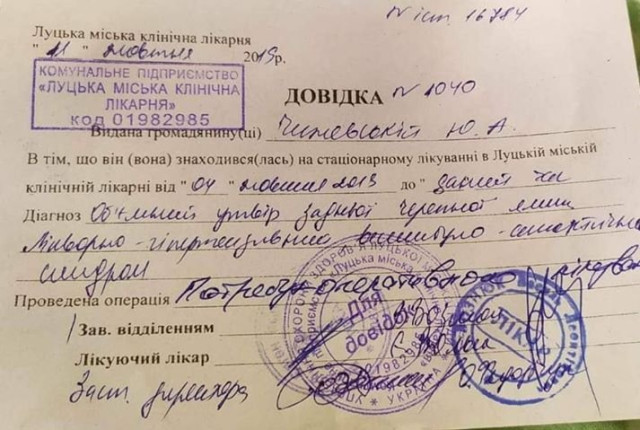 N іст. 16784
Луцька міська клінічна лікарня
"11" жовтня 2019р.
КОМУНАЛЬНЕ ПІДПРИЄМСТВО
«ЛУЦЬКА МІСЬКА КЛІНІЧНА
ЛІКАРНЯ»
код 01982985
ДОВІДКА N 1040
Видана громадянину(ці) Чижевській Ю. А.
В тім, що він (вона) знаходився(лась) на стаціонарному лікуванні в Луцькій міській
клінічній лікарні від "04" жовтня 2019 до
Діагноз Об'ємний утвір задньої черепної ямки
Лікворно-гіпертензивний
синдром
Проведена операція Потребує оперативного
Зав. відділенням
Лікуючий лікар
Заст. директора
Для
довідок
01982985
ЛІКАР